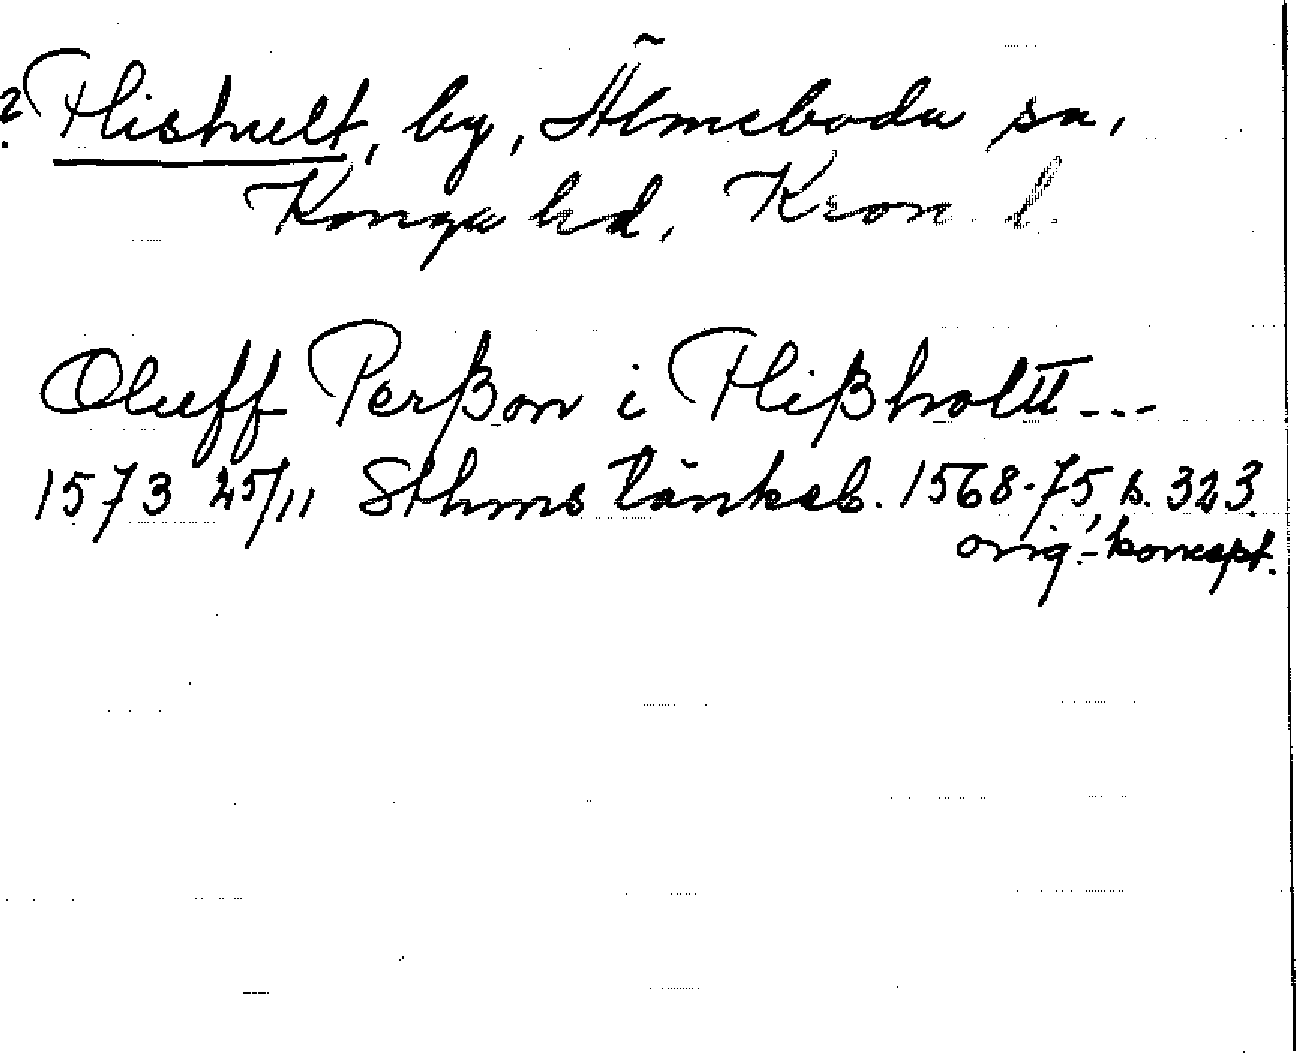 ? Flishult, by, Älmeboda sn,
Konga hd, Kron. l.
Oluff Perßon i Flißholtt ---
1573 25/11 Sthms tänkeb. 1568-75, s. 323.
orig.-koncept.